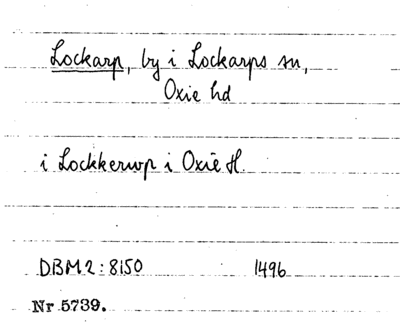 Lockarp, by i Lockarps sn,
Oxie hd
i Lockkerwp i Oxiē H.
DBM2:8150 1496
Nr 5739.